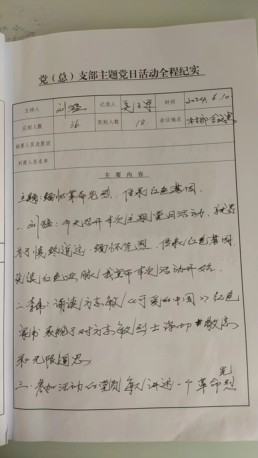 党（总）支部主题党日活动全程纪实
主持人 刘 记录人 时间 2024.6.10
应到人数 26 实到人数 18 会议地点 会议室
缺席人员及原因
列席人员名单
主 要 内 容
主题：缅怀革命先烈，传承红色基因。
一、刘 ：今天召开本次主题党日活动，
，缅怀先烈，传承红色基因
红色血脉，我宣布本次活动开始。
二、 ：诵读方志敏《可爱的中国》红色
家书 表达了对方志敏烈士深切 敬意
和无限追思。
三、参加活动的党员 讲述一个革命先烈